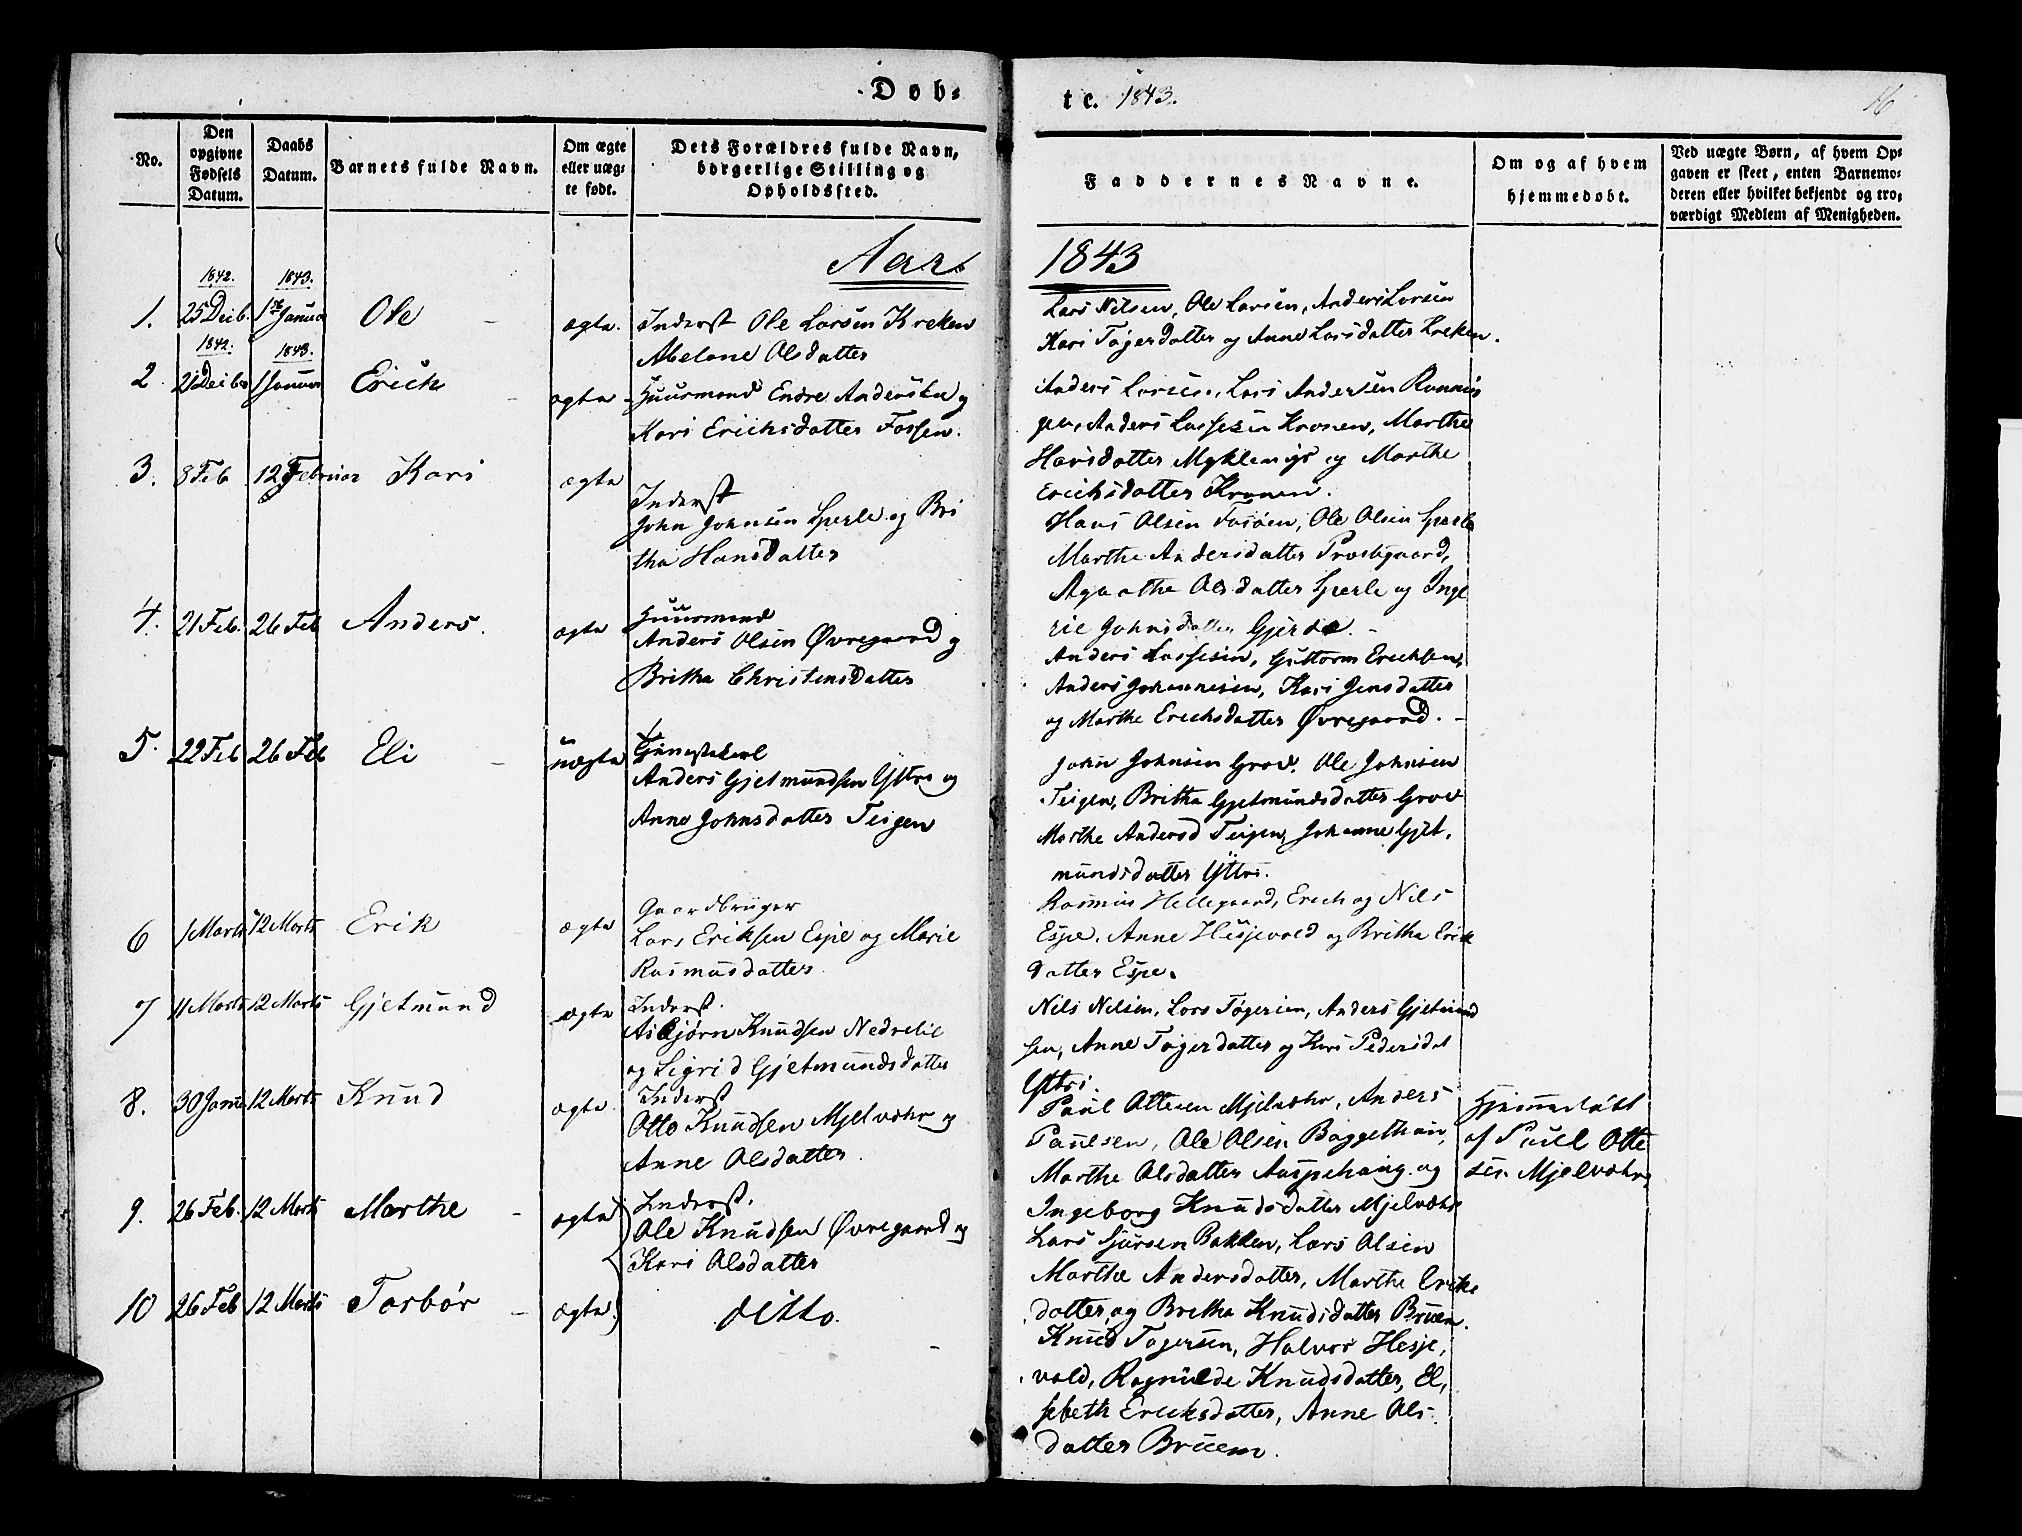 Døb-
te. 1843.
16
No.
Den opgivne Fødsels Datum.
Daabs Datum.
Barnets fulde Navn.
Om ægte eller uæg-te født.
Dets Forældres fulde Navn, borgerlige Stilling og Opholdssted.
Faddernes Navne.
Om og af hvem hjemmedøbt.
Ved uægte Børn, af hvem Op-
gaven er skeet, enten Barnemo-
deren eller hvilket bekjendt og tro-
værdigt Medlem af Menigheden.
Aar
1843
1842. 1843.
1. 25 Decb. 1ste Janua Ole ægte. Inderst Ole Larsen Kreken
Abelone Olsdatter
Lars Nilsen, Ole Larsen, Anders Larsen
Kari Tøgersdatter og Anne Larsdatter Kreken.
1842. 1843.
2. 21 Decbr 1 Januar Erich ægte Huusmand Endre Andersen og
Kari Erichsdatter Fossen.
Anders Larsen, Lars Andersen Rønnin
gen, Anders Lassesen Kronen, Marthe
Hansdatter Myklemyr og Marthe
Erichsdatter Kronen.
3. 8 Feb 12 Februar Kari ægte
Inderst
John Johnsen Sperle og Bri
tha Hansdatter
Hans Olsen Fosøen, Ole Olsen Sperle
Marthe Andersdatter Præstegaard,
Agaathe Olsdatter Sperle og Inge
rie Johnsdatter Gjerde.
4. 21 Feb. 26 Feb Anders. ægte
Huusmand
Anders Olsen Øvregaard og
Britha Christensdatter
Anders Lassesen, Guttorm Erichsen,
Anders Johannesen, Kari Jensdatter
og Marthe Erichsdatter Øvregaard.
5. 22 Feb 26 Feb Eli uægte
Tjenestekarl
Anders Gjetmundsen Yttri og
Anne Johnsdatter Teigen
John Johnsen Grov, Ole Johnsen
Teigen, Britha Gjetmundsdatter Grov
Marthe Andersd Teigen, Johanne Gjet-
mundsdatter Yttri.
6 1 Marts 12 Marts Erik ægte
Gaardbruger
Lars Eriksen Espe og Marie
Rasmusdatter
Rasmus Hellegaard, Erich og Nils
Espe, Anne Hesjevold og Britha Erick
datter Espe.
7 11 Marts 12 Marts Gjetmund ægte
Inderst.
Asbjørn Knudsen Nedrelie
og Sigrid Gjetmundsdatter
Nils Nilsen, Lars Tøgersen, Anders Gjetmund
sen, Anne Tøgersdatter og Kari Pedersdat
Yttri.
8. 30 Janu 12 Marts Knud ægte
Inderst
Otto Knudsen Mjelvæhr og
Anne Olsdatter.
Paul Ottesen Mjelvæhr, Anders
Paulsen, Ole Olsen Baggethun,
Marthe Olsdatter Aaspehaug og
Ingeborg Knudsdatter Mjelvæhr
Hjemmedøbt
af Paul Otte
sen Mjelvæhr.
9. 26 Feb. 12 Marts Marthe ægte
Inderst.
Ole Knudsen Øvregaard og
Kari Olsdatter
Lars Sjursen Bakken, Lars Olsen
Marthe Andersdatter, Marthe Eriks
datter, og Britha Knudsdatter Bruen.
10 26 Feb 12 Marts Torbør ægte ditto.
Knud Tøgersen, Halvor Hesje,
vold, Ragnilde Knudsdatter, El,
sebeth Ericksdatter, Anne Ols-
datter Bruem.